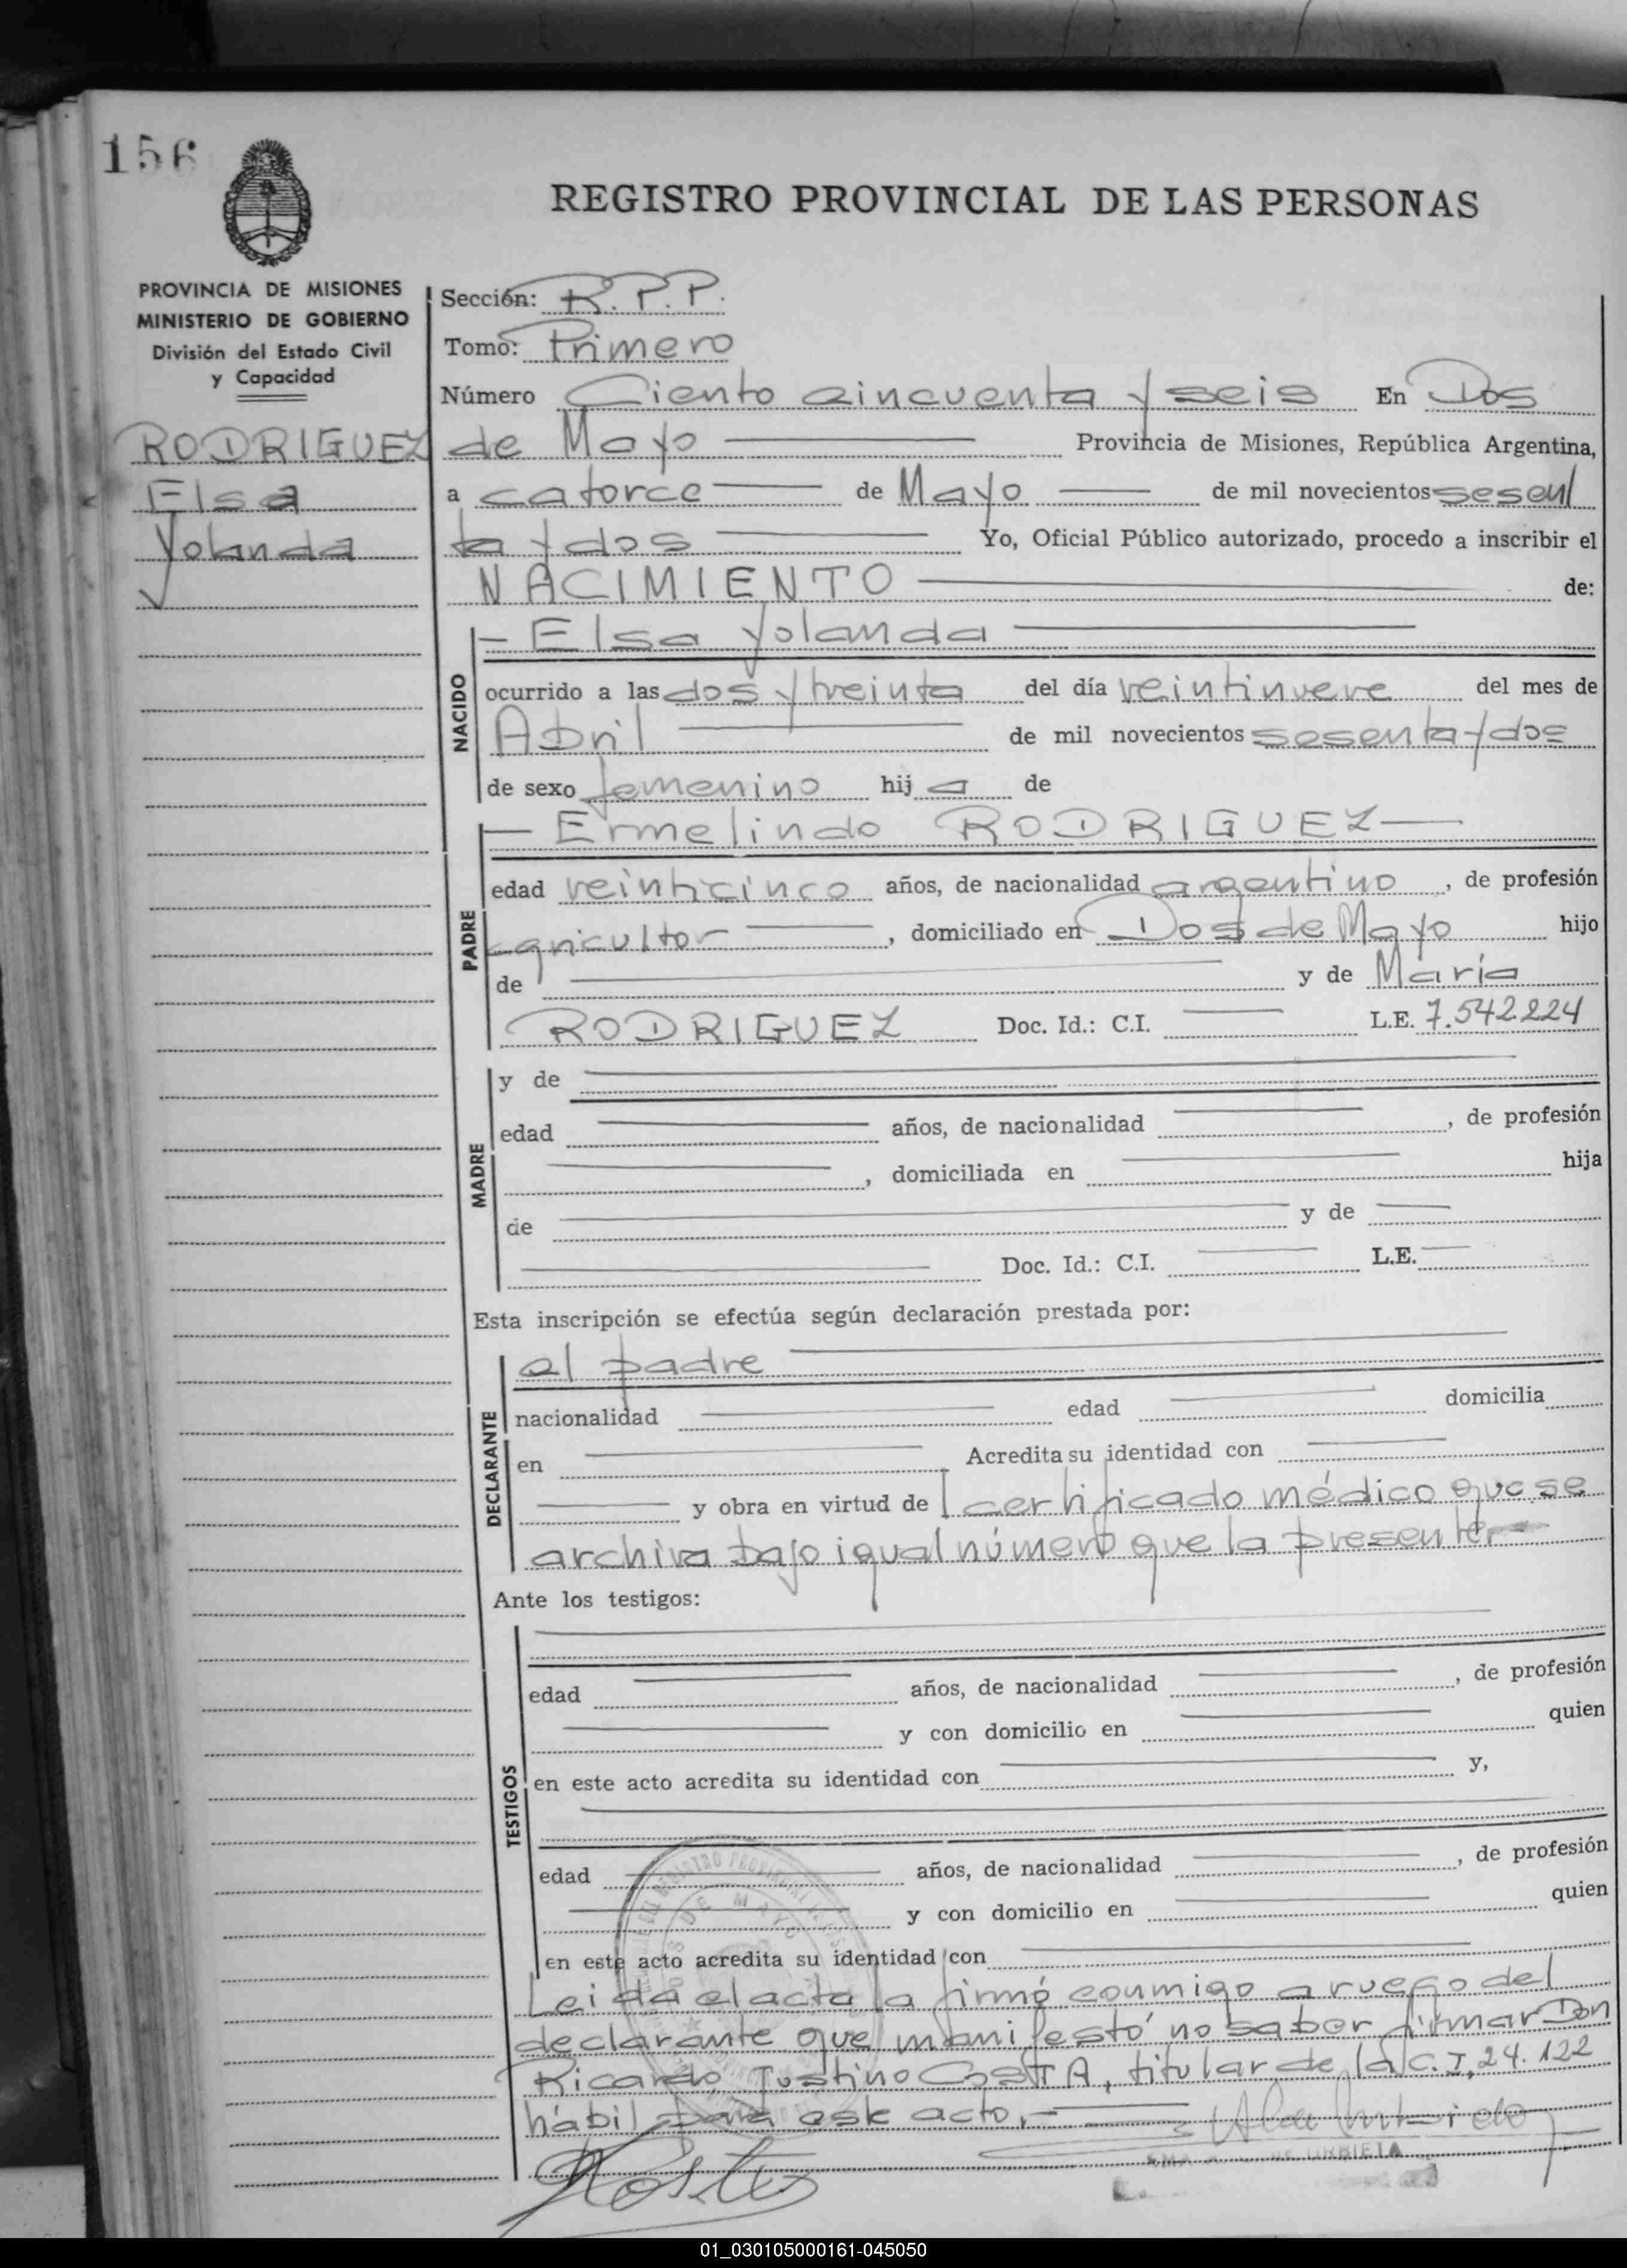 156
REGISTRO PROVINCIAL DE LAS PERSONAS
PROVINCIA DE MISIONES
MINISTERIO DE GOBIERNO
División del Estado Civil
y Capacidad
RODRIGUEZ
Elsa
Yolanda
Sección: R.P.P.
Tomo: Primero
Número Ciento cincuenta y seis En Dos
de Mayo Provincia de Misiones, República Argentina,
a catorce de Mayo de mil novecientos sesen
ta y dos Yo, Oficial Público autorizado, procedo a inscribir el
NACIMIENTO de:
NACIDO
Elsa Yolanda
ocurrido a las dos y treinta del día veintinueve del mes de
Abril de mil novecientos sesenta y dos
de sexo femenino hij a de
PADRE
Ermelindo RODRIGUEZ
edad veinticinco años, de nacionalidad argentino, de profesión
agricultor, domiciliado en Dos de Mayo hijo
de y de María
RODRIGUEZ Doc. Id.: C.I. L.E. 7.542224
MADRE
y de
edad años, de nacionalidad , de profesión
, domiciliada en hija
de y de
Doc. Id.: C.I. L.E.
Esta inscripción se efectúa según declaración prestada por:
DECLARANTE
el padre
nacionalidad edad domicilia
en Acredita su identidad con
y obra en virtud de certificado médico que se
archiva bajo igual número que la presente
Ante los testigos:
TESTIGOS
edad años, de nacionalidad , de profesión
y con domicilio en quien
en este acto acredita su identidad con y,
edad años, de nacionalidad , de profesión
y con domicilio en quien
en este acto acredita su identidad con
Leida el acta la firmó conmigo a ruego del
declarante que manifestó no saber firmar Don
Ricardo Justino COSTA, titular de la C.I. 24.122
hábil para este acto.-
URBIETA
01_030105000161-045050